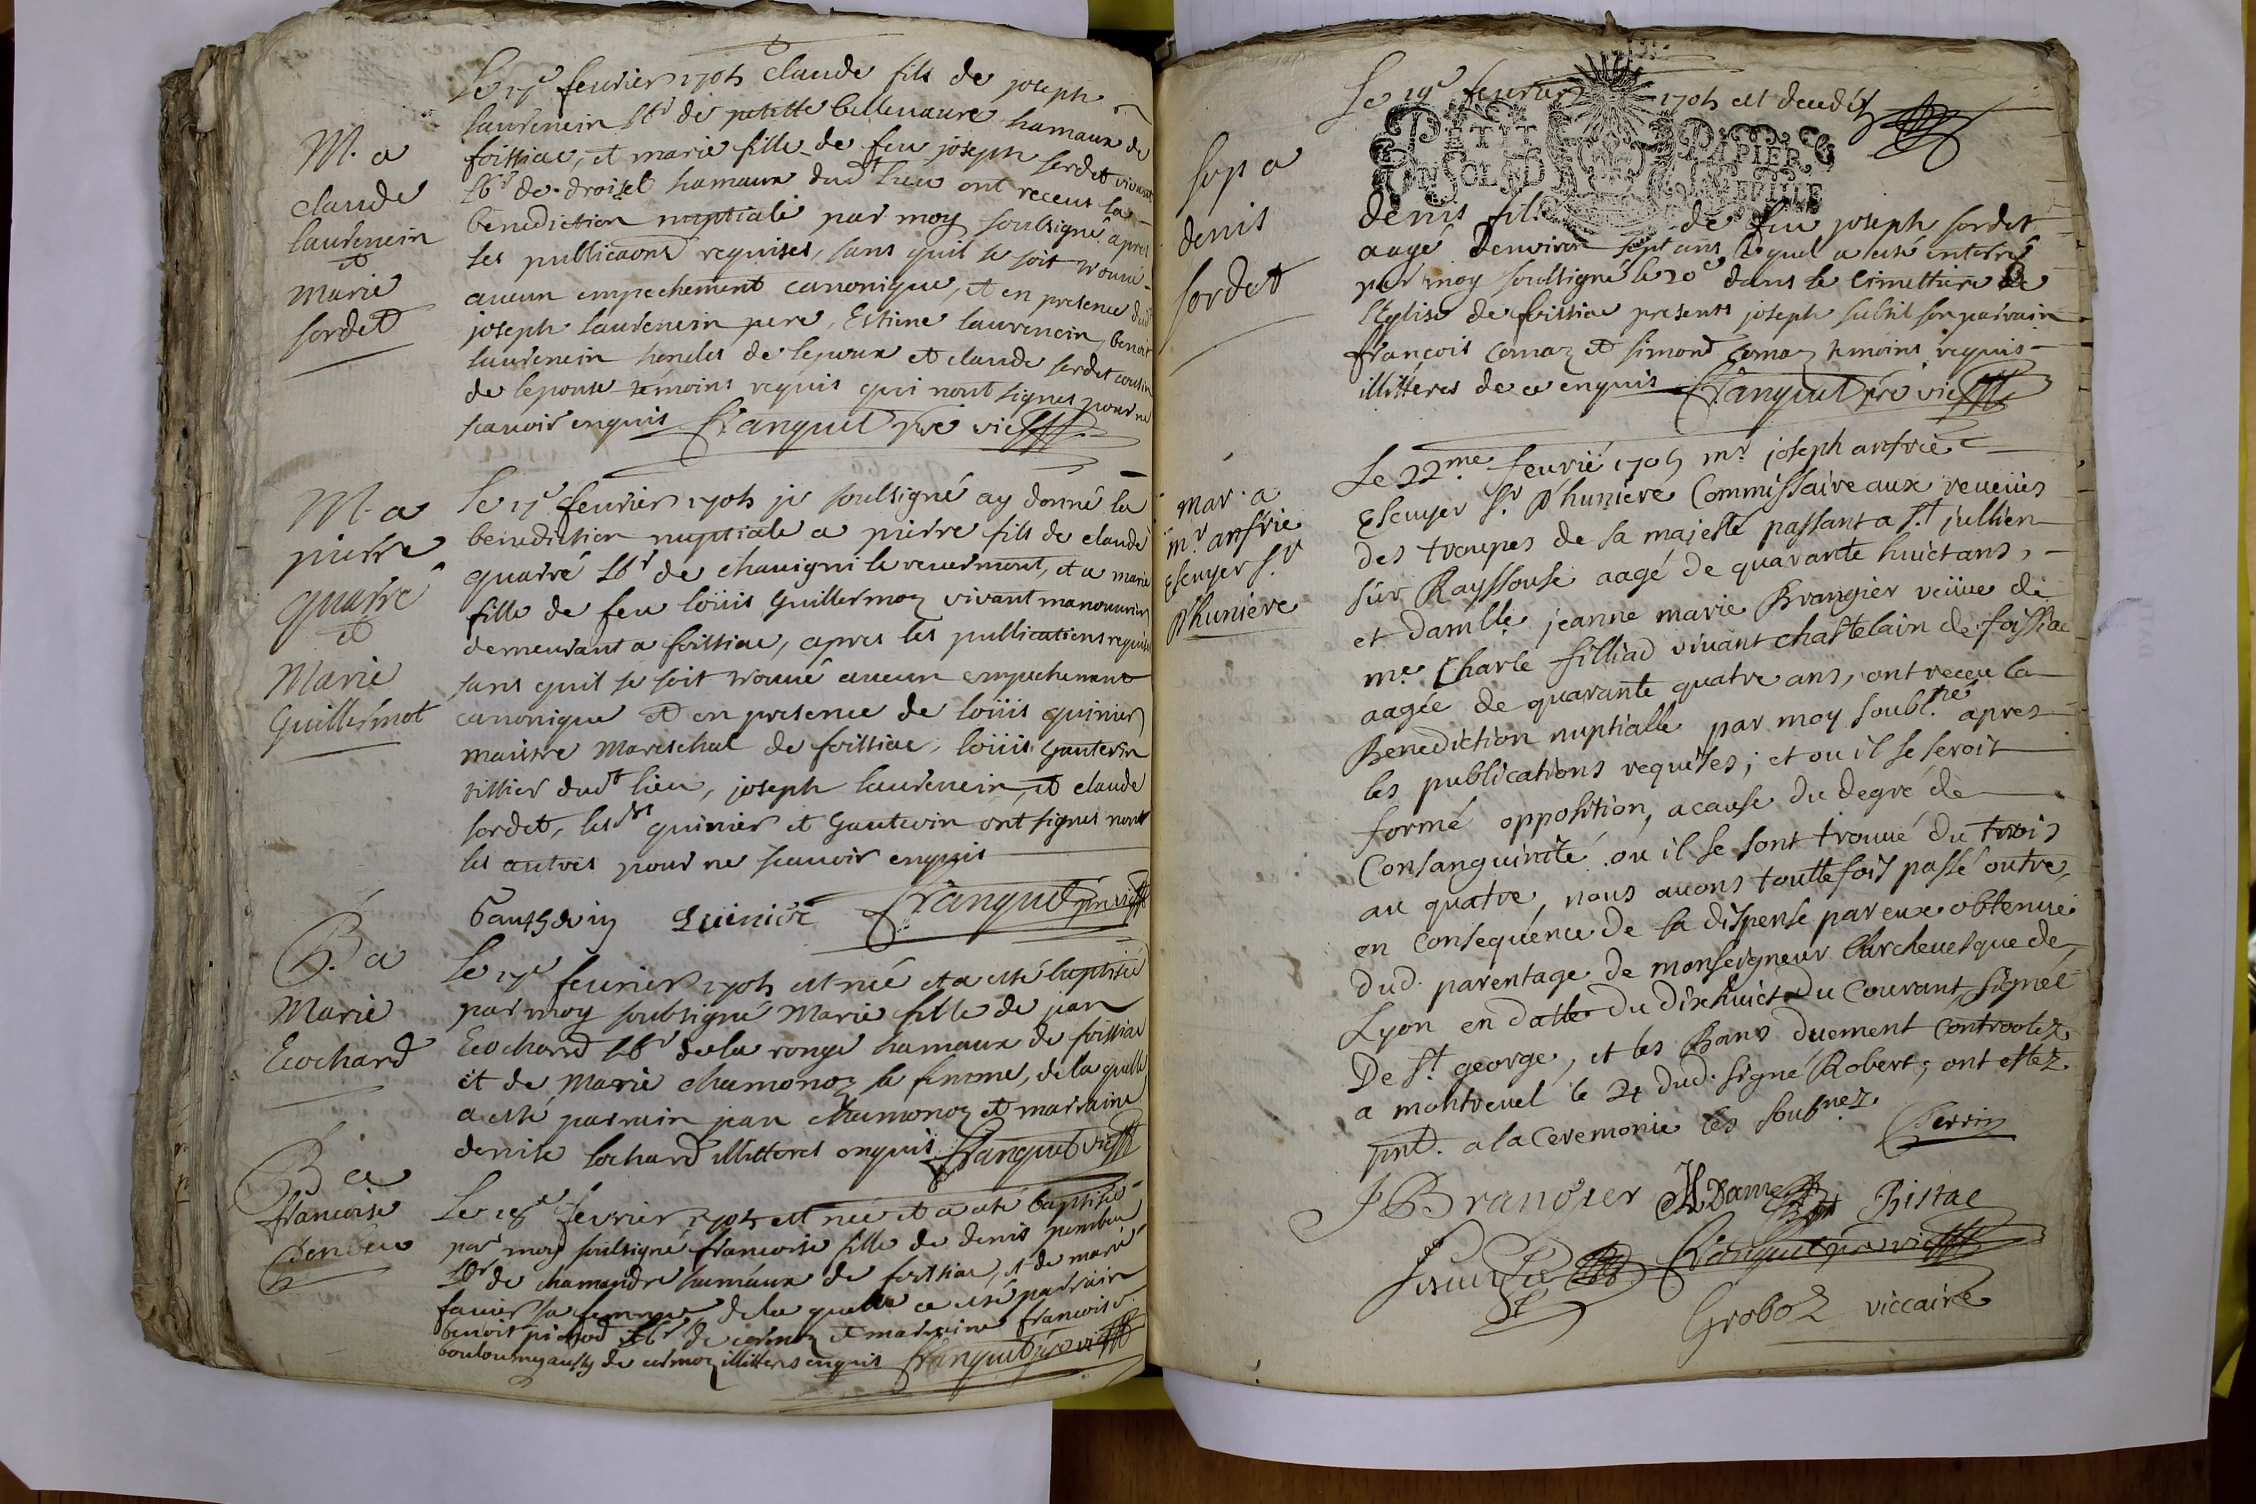 M. a
claude
laurencin
et
marie
sordet
Le 17e feurier 1705 claude fils de joseph
laurencin lbr de petitte bellenaure hamaux de
foissiac, et marie fille de feu joseph sordet vivant
lbr de droisel hamaux dudt lieu ont receus la
benediction nuptiale par moy soubsigné apres
les publicaons requises, sans quil se soit trouué
aucun empechement canonique, et en presence dudt
joseph laurencin pere, Estiene laurencin, benoit
laurencin freres de lepoux et claude sordet cousin
de lepouse témoins requis qui nont signes pour ne
scauoir enquis franquet pre vic
M. a
pierre
quarré
et
Marie
Guillermot
Le 17e feurier 1705 je soubsigné ay donné la
benediction nuptiale a pierre fils de claude
quarré lbr de chauigni le reuermont, et a marie
fille de feu loüis Guillermoz vivant manouurier
demeurant a foissiac, apres les publications requises
sans quil se soit trouué aucun empechement
canonique et en presence de loüis quinier
maistre Mareschal de foissiac, loüis Gauterin
tissier dudt lieu, joseph laurencin, et claude
sordet, lesdts quinier et Gauterin ont signes nont
les autres pour ne scauoir enquis
Quinier franquet pre vic
B. a
Marie
Ecochard
Le 17e feurier 1705 est née et a esté baptisée
par moy soubsigné Marie fille de jean
Ecochard lbr de la ronge hamaux de foissiac
et de Marie chamonoz sa femme, de laquelle
a esté parrain jean chamonoz et marraine
denise Cochard illitteres enquis franquet vic
B a
francoise
Le 18e feurier 1705 est née et a esté baptisée
par moy soulsigné francoise fille de denis
lbr de chamandre hamaux de foissiac, et de marie
fauier sa femme de la quelle a esté parrain
benoit lbr de cormoz et marraine francoise
aussy de cormoz illitteres enquis franquet pre vic
Le 19e feurier 1705 est decedé
PETIT PAPIER
UN SOL
sep a
denis
sordet
denis fils de feu joseph sordet
aagé denviron sept ans lequel a esté enterré
par moy soulsigné le 20e dans le Cimettiere de
l'Eglise de foissiac presents joseph subtil son parrain
françois Comaz et simond Comaz temoins requis
illitteres de ce enquis franquet pre vic
mar. a
mr. anfrie
Escuyer sr
d'huniere
Le 22me feurié 1705 mr joseph anfrie
Escuyer sr d'huniere Commissaire aux reueües
des troupes de sa majesté passant a st jullien
sur Rayssouse aagé de quarante huict ans,
et damlle jeanne marie Brangier veüue de
me Charle filliad vivant chastelain de foissiac
aagée de quarante quatre ans, ont receu la
Benediction nuptialle par moy soubsne apres
les publications requises; et ou il se seroit
formé opposition, a cause du degré de
Consanguinité ou il se sont trouué du trois
au quatre, nous auons touttefois passé outre,
en consequence de la dispense par eux obtenue
dud. parentage de monseigneur l'archeuesque de
Lyon en datte du dixhuict du courant, signée
De st george, et les Bans duement controolez
a montreuel le 21 dud. signé Robert; ont estez
pnt. a la ceremonie les soubnez.
Perrin
J Brangier
Bistac
franquet pre vic
Groboz viccaire